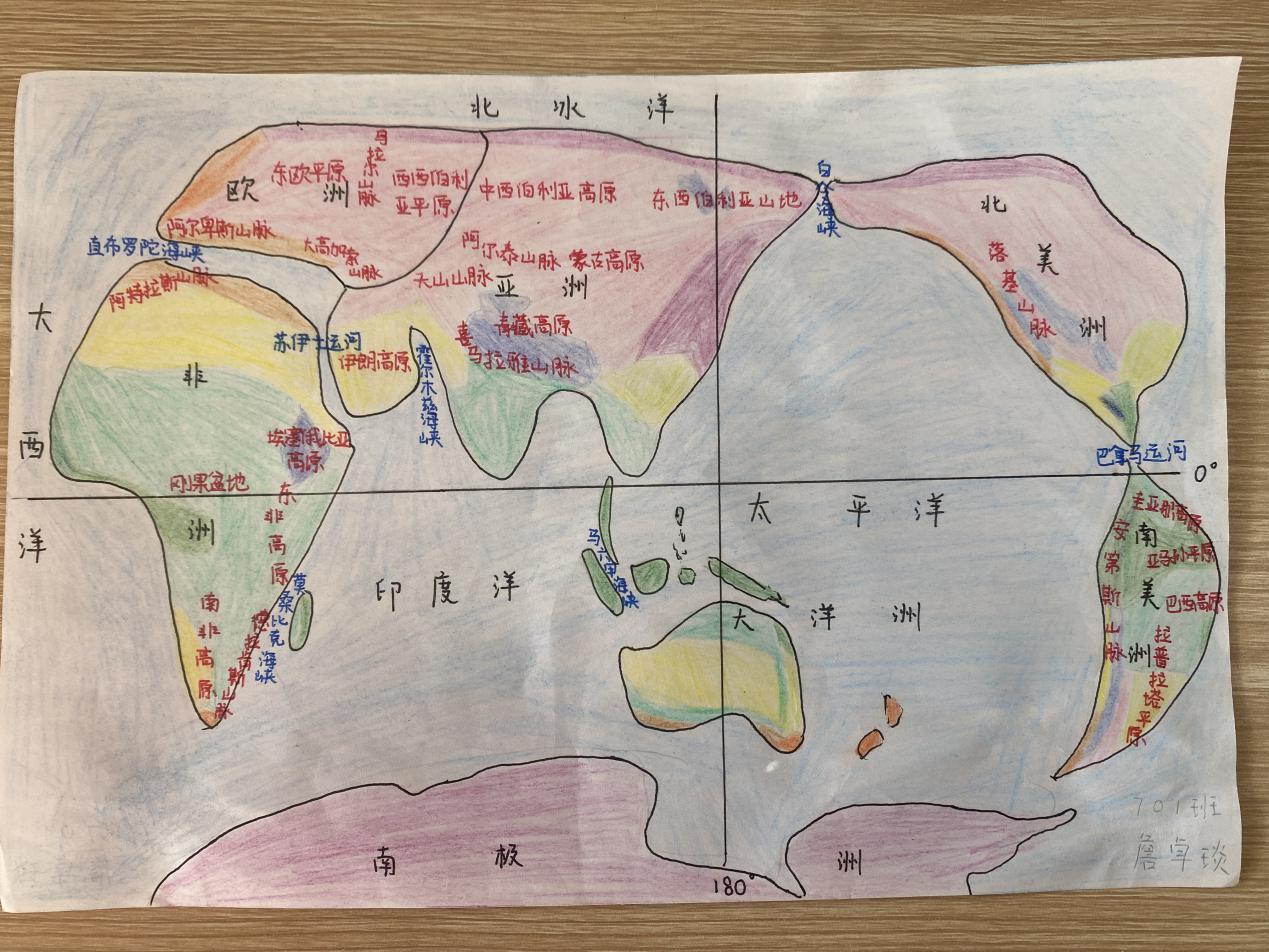 北冰洋
乌拉尔山脉
东欧平原
欧洲
西西伯利
亚平原
中西伯利亚高原
东西伯利亚山地
白令海峡
北美洲
落基山脉
阿尔卑斯山脉
直布罗陀海峡
大高加索山脉
阿尔泰山脉
蒙古高原
天山山脉
亚洲
阿特拉斯山脉
大西洋
苏伊士运河
伊朗高原
霍尔木兹海峡
青藏高原
喜马拉雅山脉
非洲
埃塞俄比亚
高原
刚果盆地
东非高原
巴拿马运河
0°
太平洋
印度洋
马六甲海峡
莫桑比克海峡
南非高原
德拉肯斯山脉
大洋洲
圭亚那高原
安第斯山脉
南美洲
亚马孙平原
巴西高原
拉普拉塔平原
南极洲
180°
701班
詹卓琰